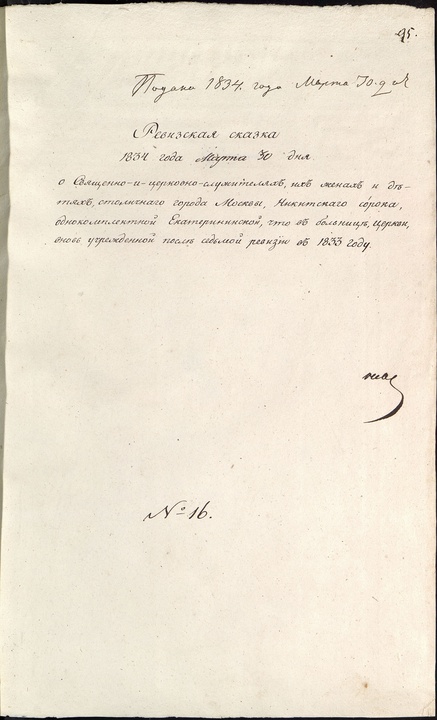 95.
Подано 1834. года Марта 30. дня
Ревизская сказка
1834 года Марта 30 дня
о Священно-и-церковно-служителяхъ, ихъ женахъ и дѣ-
тяхъ, столичнаго города Москвы, Никитскаго сорока,
однокомплектной Екатерининской, что въ больницѣ, церкви,
вновь учрежденной послѣ седьмой ревизіи въ 1833 году.
№ 16.